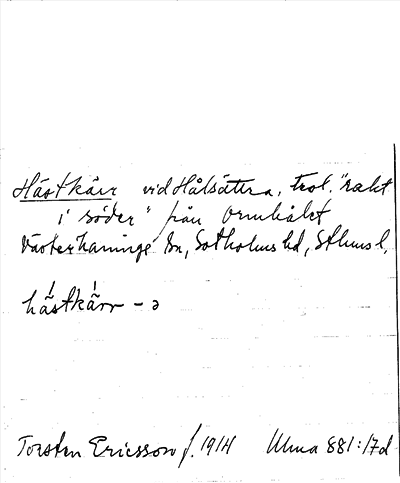 Hästkärr vid Hålsättra, trol. "rakt
i söder" från Ormhålet
Västerhaninge sn, Sotholms hd, Sthms l.
hästkärr - ə
Torsten Ericsson f. 1914 Ulma 881:17d